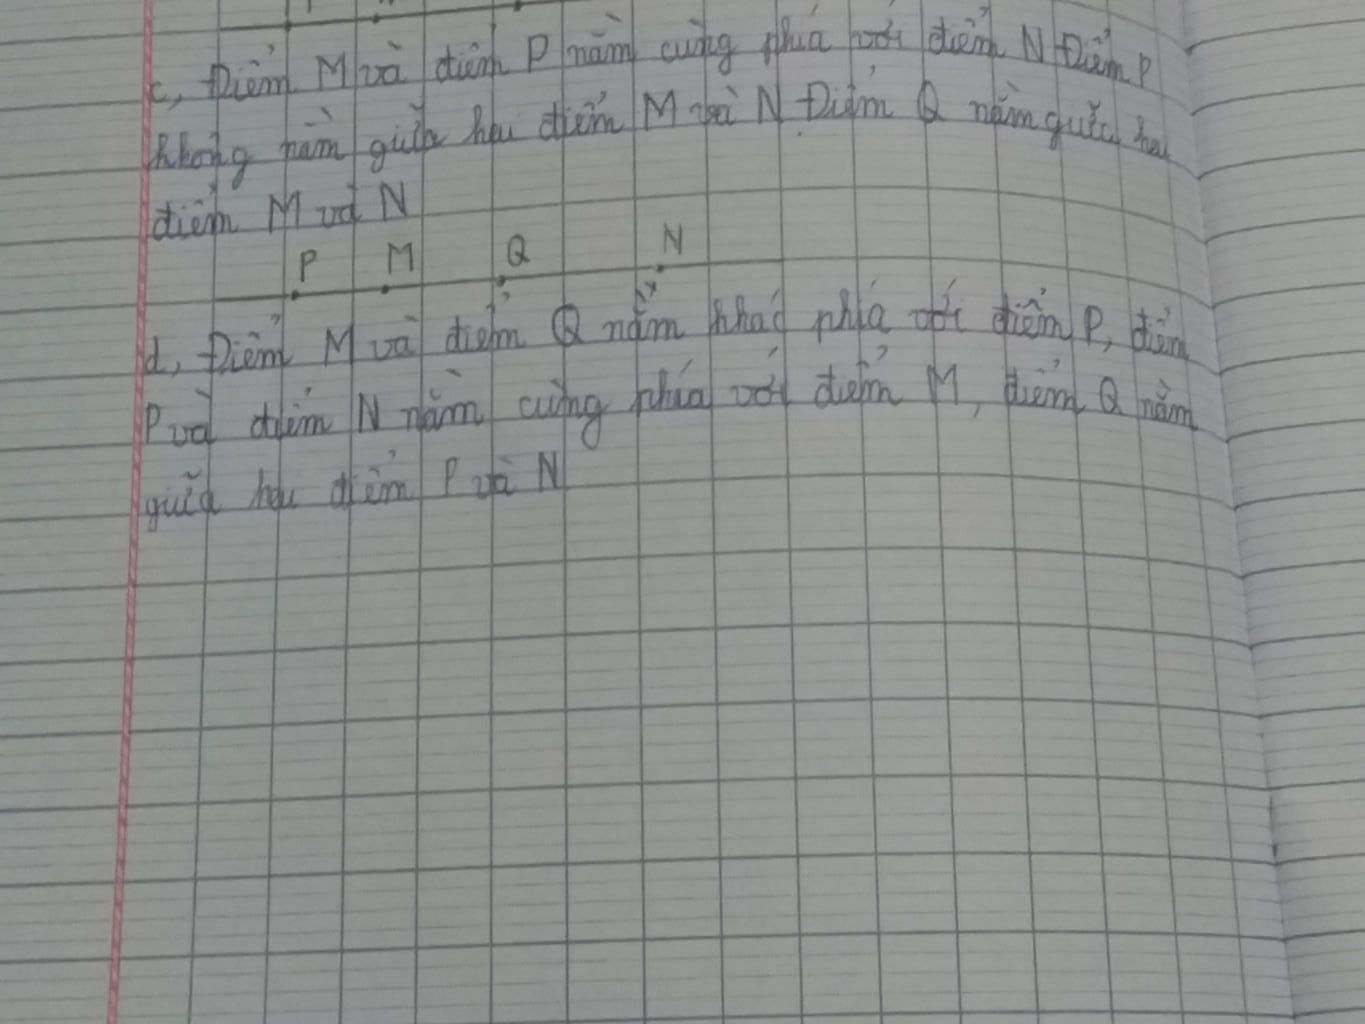 c, Điểm M và điểm P nằm cùng phía với điểm N Điểm P
không nằm giữa hai điểm M và N Điểm Q nằm giữa hai
điểm M và N
P M Q N
d, Điểm M và điểm Q nằm khác phía với điểm P, điểm
P và điểm N nằm cùng phía với điểm M, điểm Q nằm
giữa hai điểm P và N